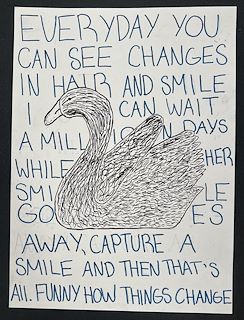 EVERYDAY YOU
CAN SEE CHANGES
IN HAIR AND SMILE
I CAN WAIT
A MILLION DAYS
WHILE HER
SMI LE
GO ES
AWAY, CAPTURE A
SMILE AND THEN THAT'S
All. FUNNY HOW THINGS CHANGE